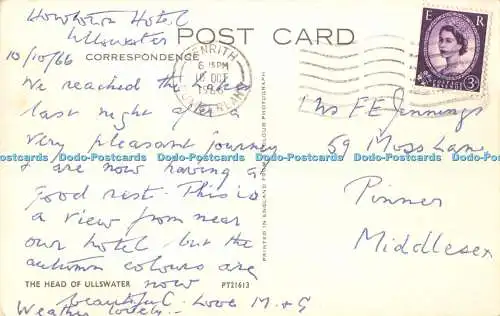 Howtown Hotel
Ullswater
10/10/66
POST CARD
CORRESPONDENCE
PENRITH
6 15 PM
10 OCT
1966
CUMBERLAND
E R
POSTAGE
3D
We reached the Lakes
last night after a
very pleasant journey
& are now having a
good rest. This is
a view from near
our hotel but the
autumn colours are
now
beautiful. Love M & G
Weather lovely.
Mrs F E Jennings
59 Moss Lane
Pinner
Middlesex
THE HEAD OF ULLSWATER
PT21613
PRINTED IN ENGLAND
COLOUR PHOTOGRAPH
Dodo-Postcards Dodo-Postcards Dodo-Postcards Dodo-Postcards Dodo-Postcards Dodo-Postcards Dodo-Postcards